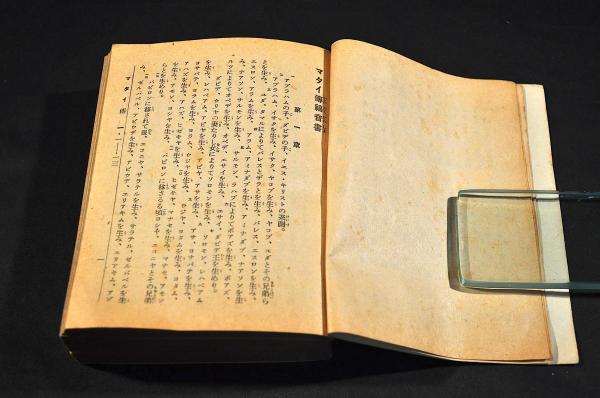 マタイ傳福音書
第一章
アブラハムの子、ダビデの子、イエス・キリストの系圖。
アブラハム、イサクを生み、イサク、ヤコブを生み、ヤコブ、ユダとその兄弟ら
とを生み、ユダ、タマルによりてパレスとザラとを生み、パレス、エスロンを生み、
エスロン、アラムを生み、アラム、アミナダブを生み、アミナダブ、ナアソンを生
み、ナアソン、サルモンを生み、サルモン、ラハブによりてボアズを生み、ボアズ、
ルツによりてオベデを生み、オベデ、エサイを生み、エサイ、ダビデ王を生めり。
ダビデ、ウリヤの妻たりし女によりてソロモンを生み、ソロモン、レハベアム
を生み、レハベアム、アビヤを生み、アビヤ、アサを生み、アサ、ヨサパテを生み、
ヨサパテ、ヨラムを生み、ヨラム、ウジヤを生み、ウジヤ、ヨタムを生み、ヨタム、
アハズを生み、アハズ、ヒゼキヤを生み、ヒゼキヤ、マナセを生み、マナセ、アモン
を生み、アモン、ヨシヤを生み、バビロンに移さるる頃ヨシヤ、エコニヤとその兄弟
らとを生めり。
バビロンに移されて後、エコニヤ、サラテルを生み、サラテル、ゼルバベルを生
み、ゼルバベル、アビウデを生み、アビウデ、エリアキムを生み、エリアキム、アゾ
マタイ傳
一